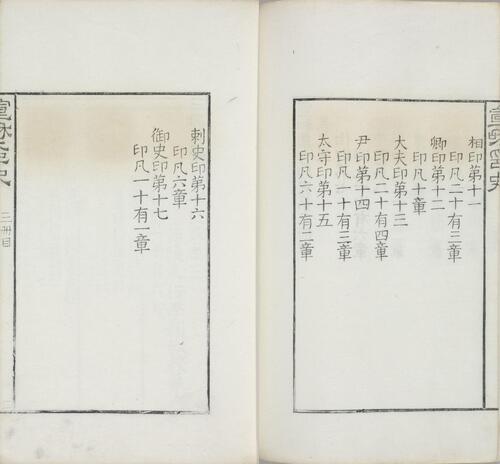 相印第十一
印凡二十有三章
卿印第十二
印凡十章
大夫印第十三
印凡二十有四章
尹印第十四
印凡一十有三章
太守印第十五
印凡六十有二章
刺史印第十六
印凡六章
御史印第十七
印凡一十有一章
三册目